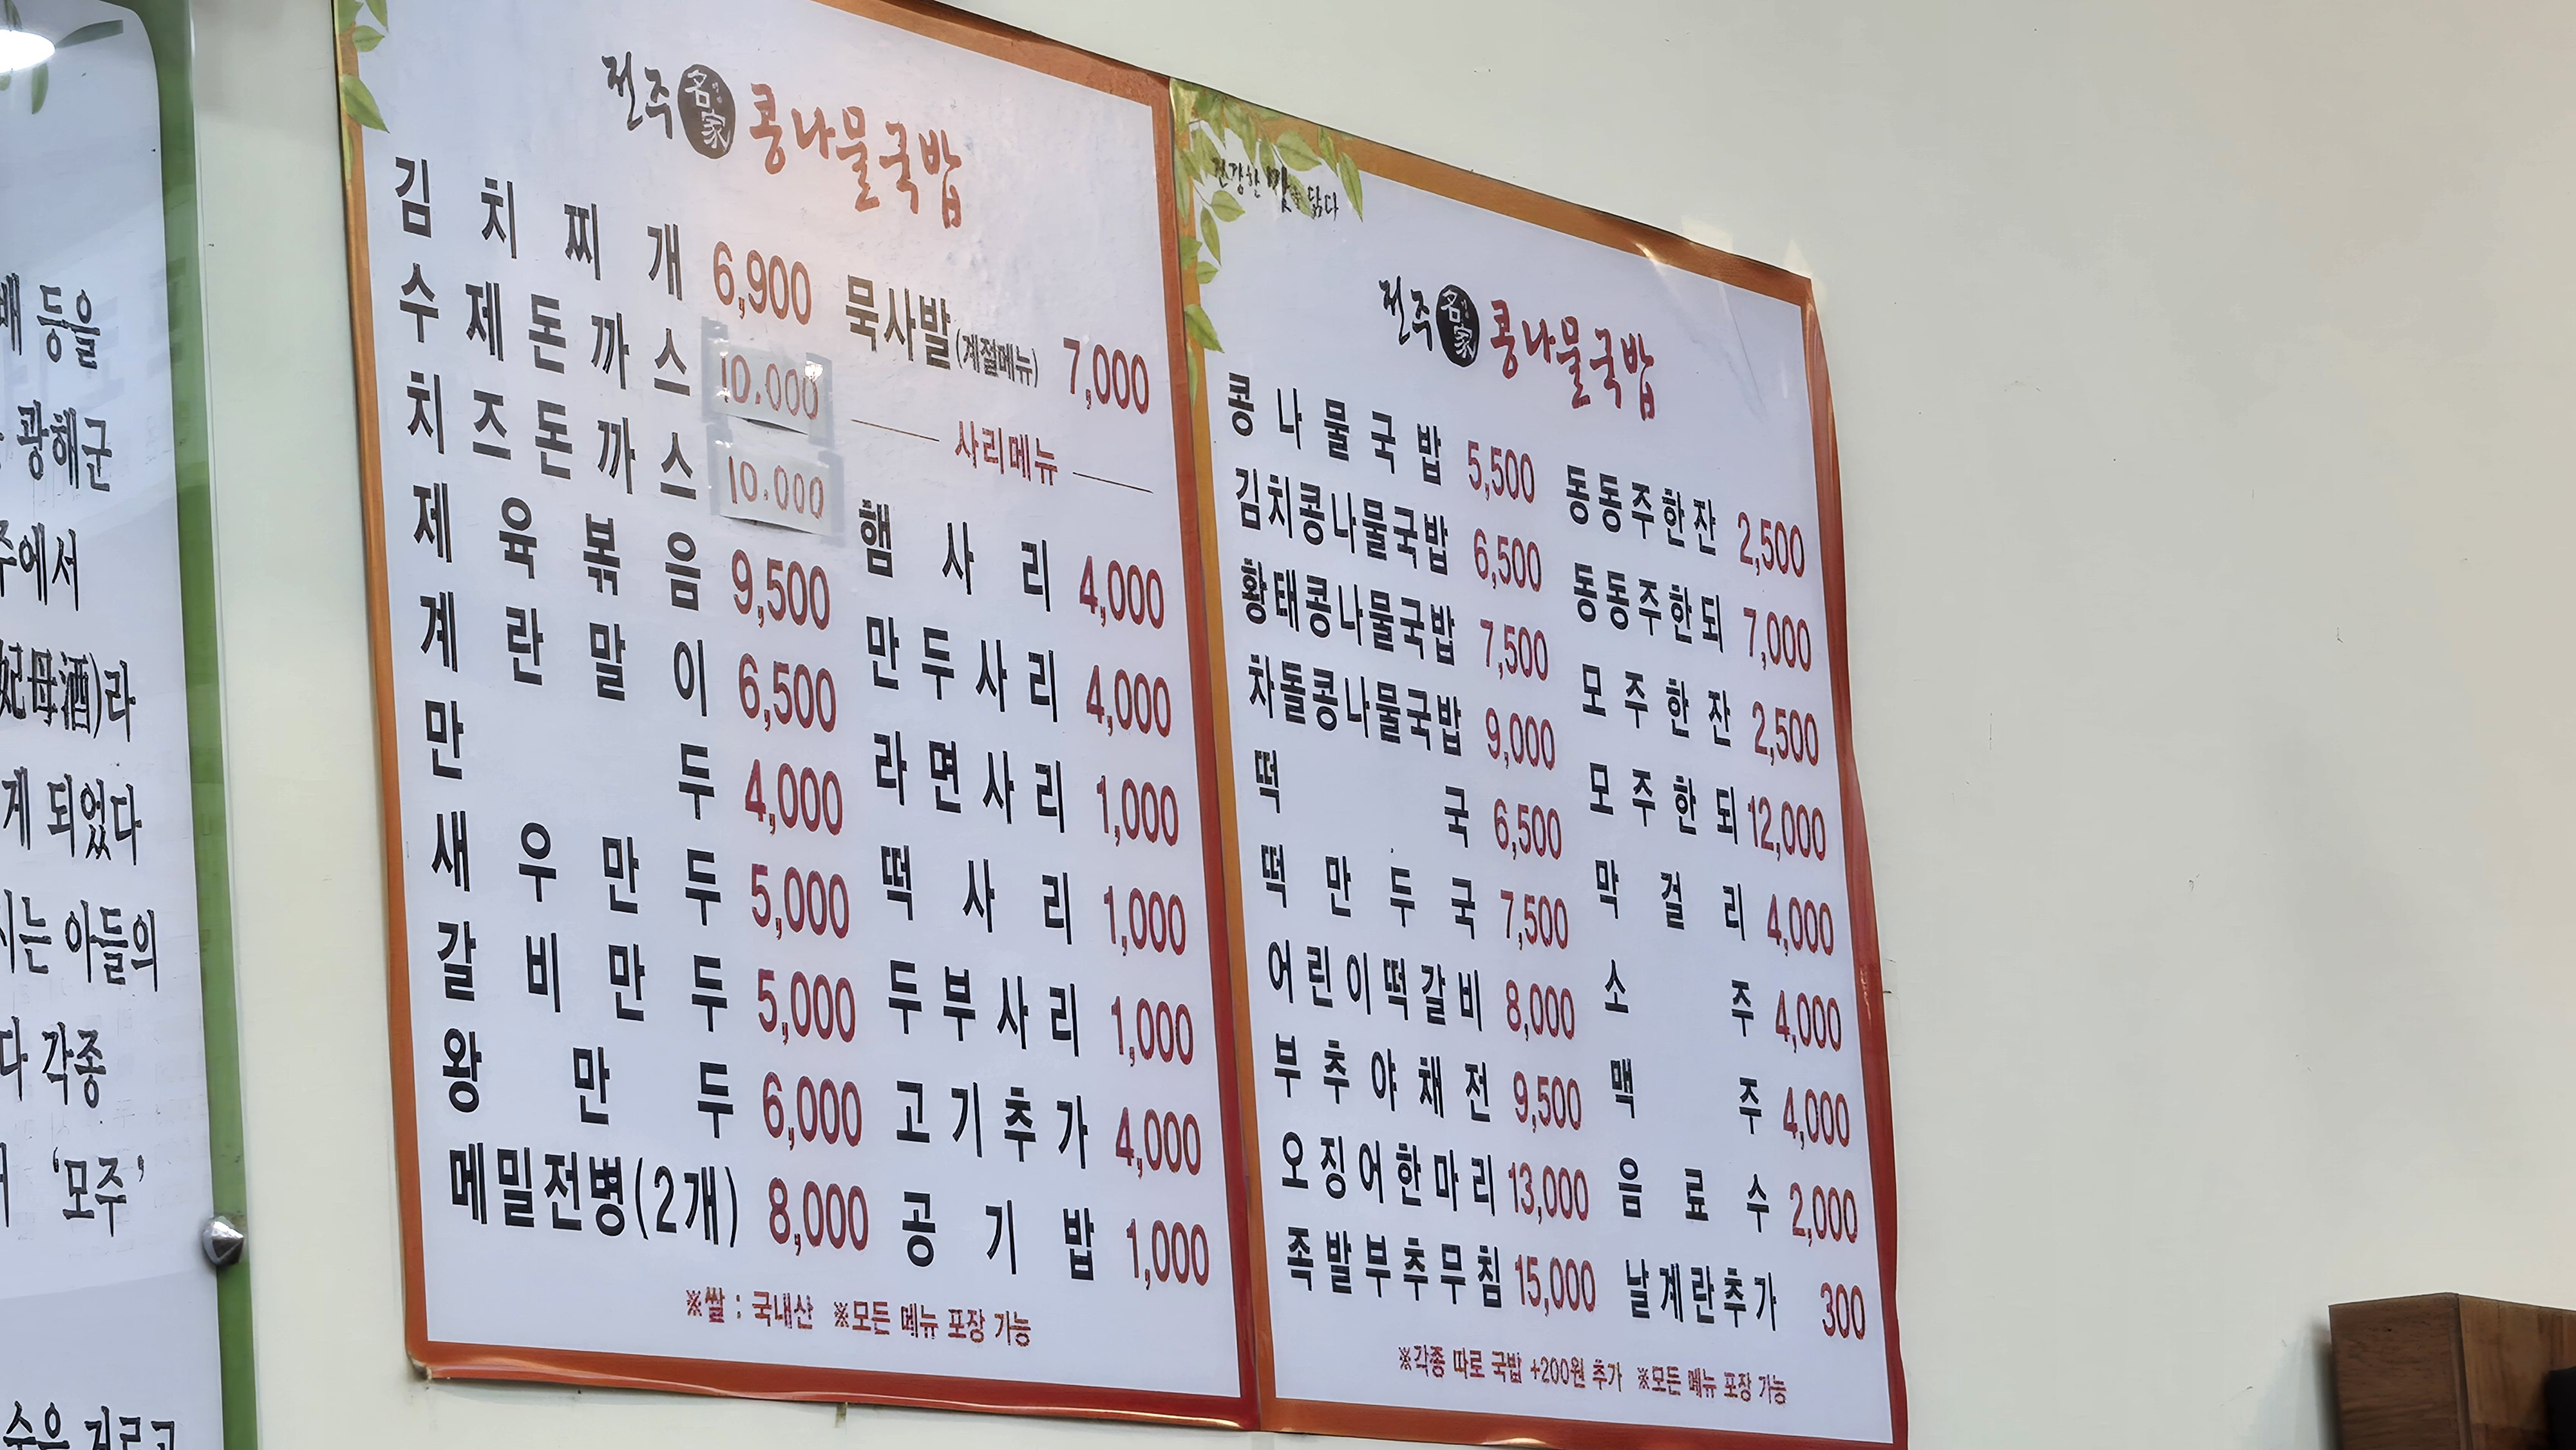 배 등을
광해군
주에서
妃母酒)라
게 되었다
시는 아들의
다 각종
'모주'
전주 名家 콩나물국밥
김치찌개 6,900
수제돈까스 10,000
치즈돈까스 10,000
제육볶음 9,500
계란말이 6,500
만두 4,000
새우만두 5,000
갈비만두 5,000
왕만두 6,000
메밀전병(2개) 8,000
묵사발(계절메뉴) 7,000
사리메뉴
햄사리 4,000
만두사리 4,000
라면사리 1,000
떡사리 1,000
두부사리 1,000
고기추가 4,000
공기밥 1,000
※쌀 : 국내산 ※모든 메뉴 포장 가능
건강한 맛을 닮다
전주 名家 콩나물국밥
콩나물국밥 5,500
김치콩나물국밥 6,500
황태콩나물국밥 7,500
차돌콩나물국밥 9,000
떡국 6,500
떡만두국 7,500
어린이떡갈비 8,000
부추야채전 9,500
오징어한마리 13,000
족발부추무침 15,000
동동주한잔 2,500
동동주한되 7,000
모주한잔 2,500
모주한되 12,000
막걸리 4,000
소주 4,000
맥주 4,000
음료수 2,000
날계란추가 300
※각종 따로 국밥 +200원 추가 ※모든 메뉴 포장 가능